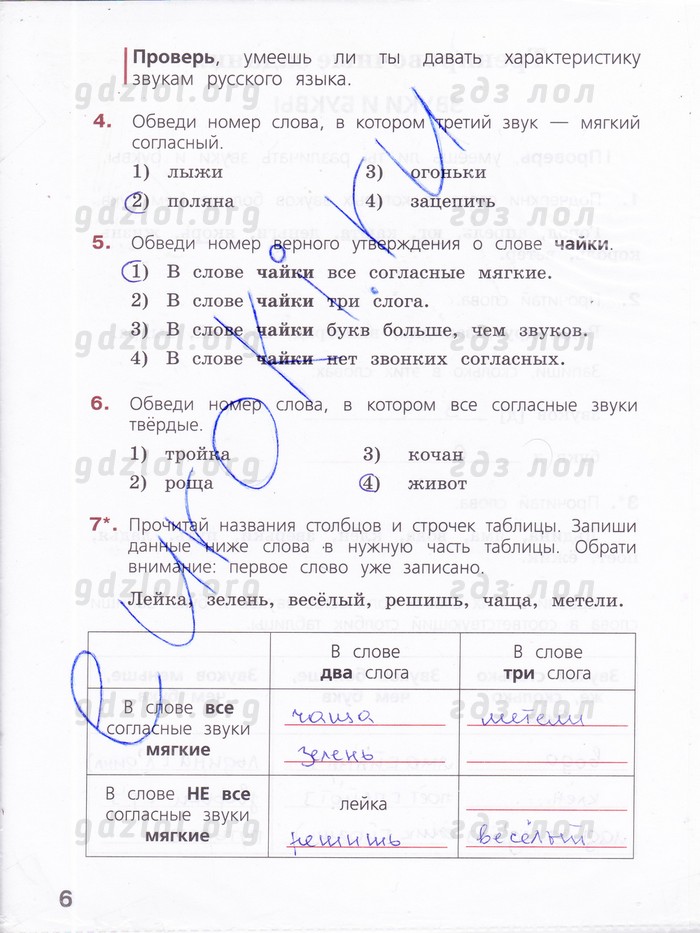 Проверь, умеешь ли ты давать характеристику
звукам русского языка.
gdzlol.org гдз лол
4. Обведи номер слова, в котором третий звук — мягкий
согласный.
1) лыжи 3) огоньки
2) поляна 4) зацепить
gdzlol.org гдз лол
5. Обведи номер верного утверждения о слове чайки.
1) В слове чайки все согласные мягкие.
2) В слове чайки три слога.
3) В слове чайки букв больше, чем звуков.
gdzlol.org гдз лол
4) В слове чайки нет звонких согласных.
6. Обведи номер слова, в котором все согласные звуки
твёрдые.
1) тройка 3) кочан
gdzlol.org гдз лол
2) роща 4) живот
7*. Прочитай названия столбцов и строчек таблицы. Запиши
данные ниже слова в нужную часть таблицы. Обрати
внимание: первое слово уже записано.
gdzlol.org гдз лол
Лейка, зелень, весёлый, решишь, чаща, метели.
В слове два слога
В слове три слога
gdzlol.org гдз лол
В слове все
согласные звуки
мягкие
чаща
зелень
метели
В слове НЕ все
согласные звуки
мягкие
лейка
решишь
весёлый
gdzlol.org гдз лол
6